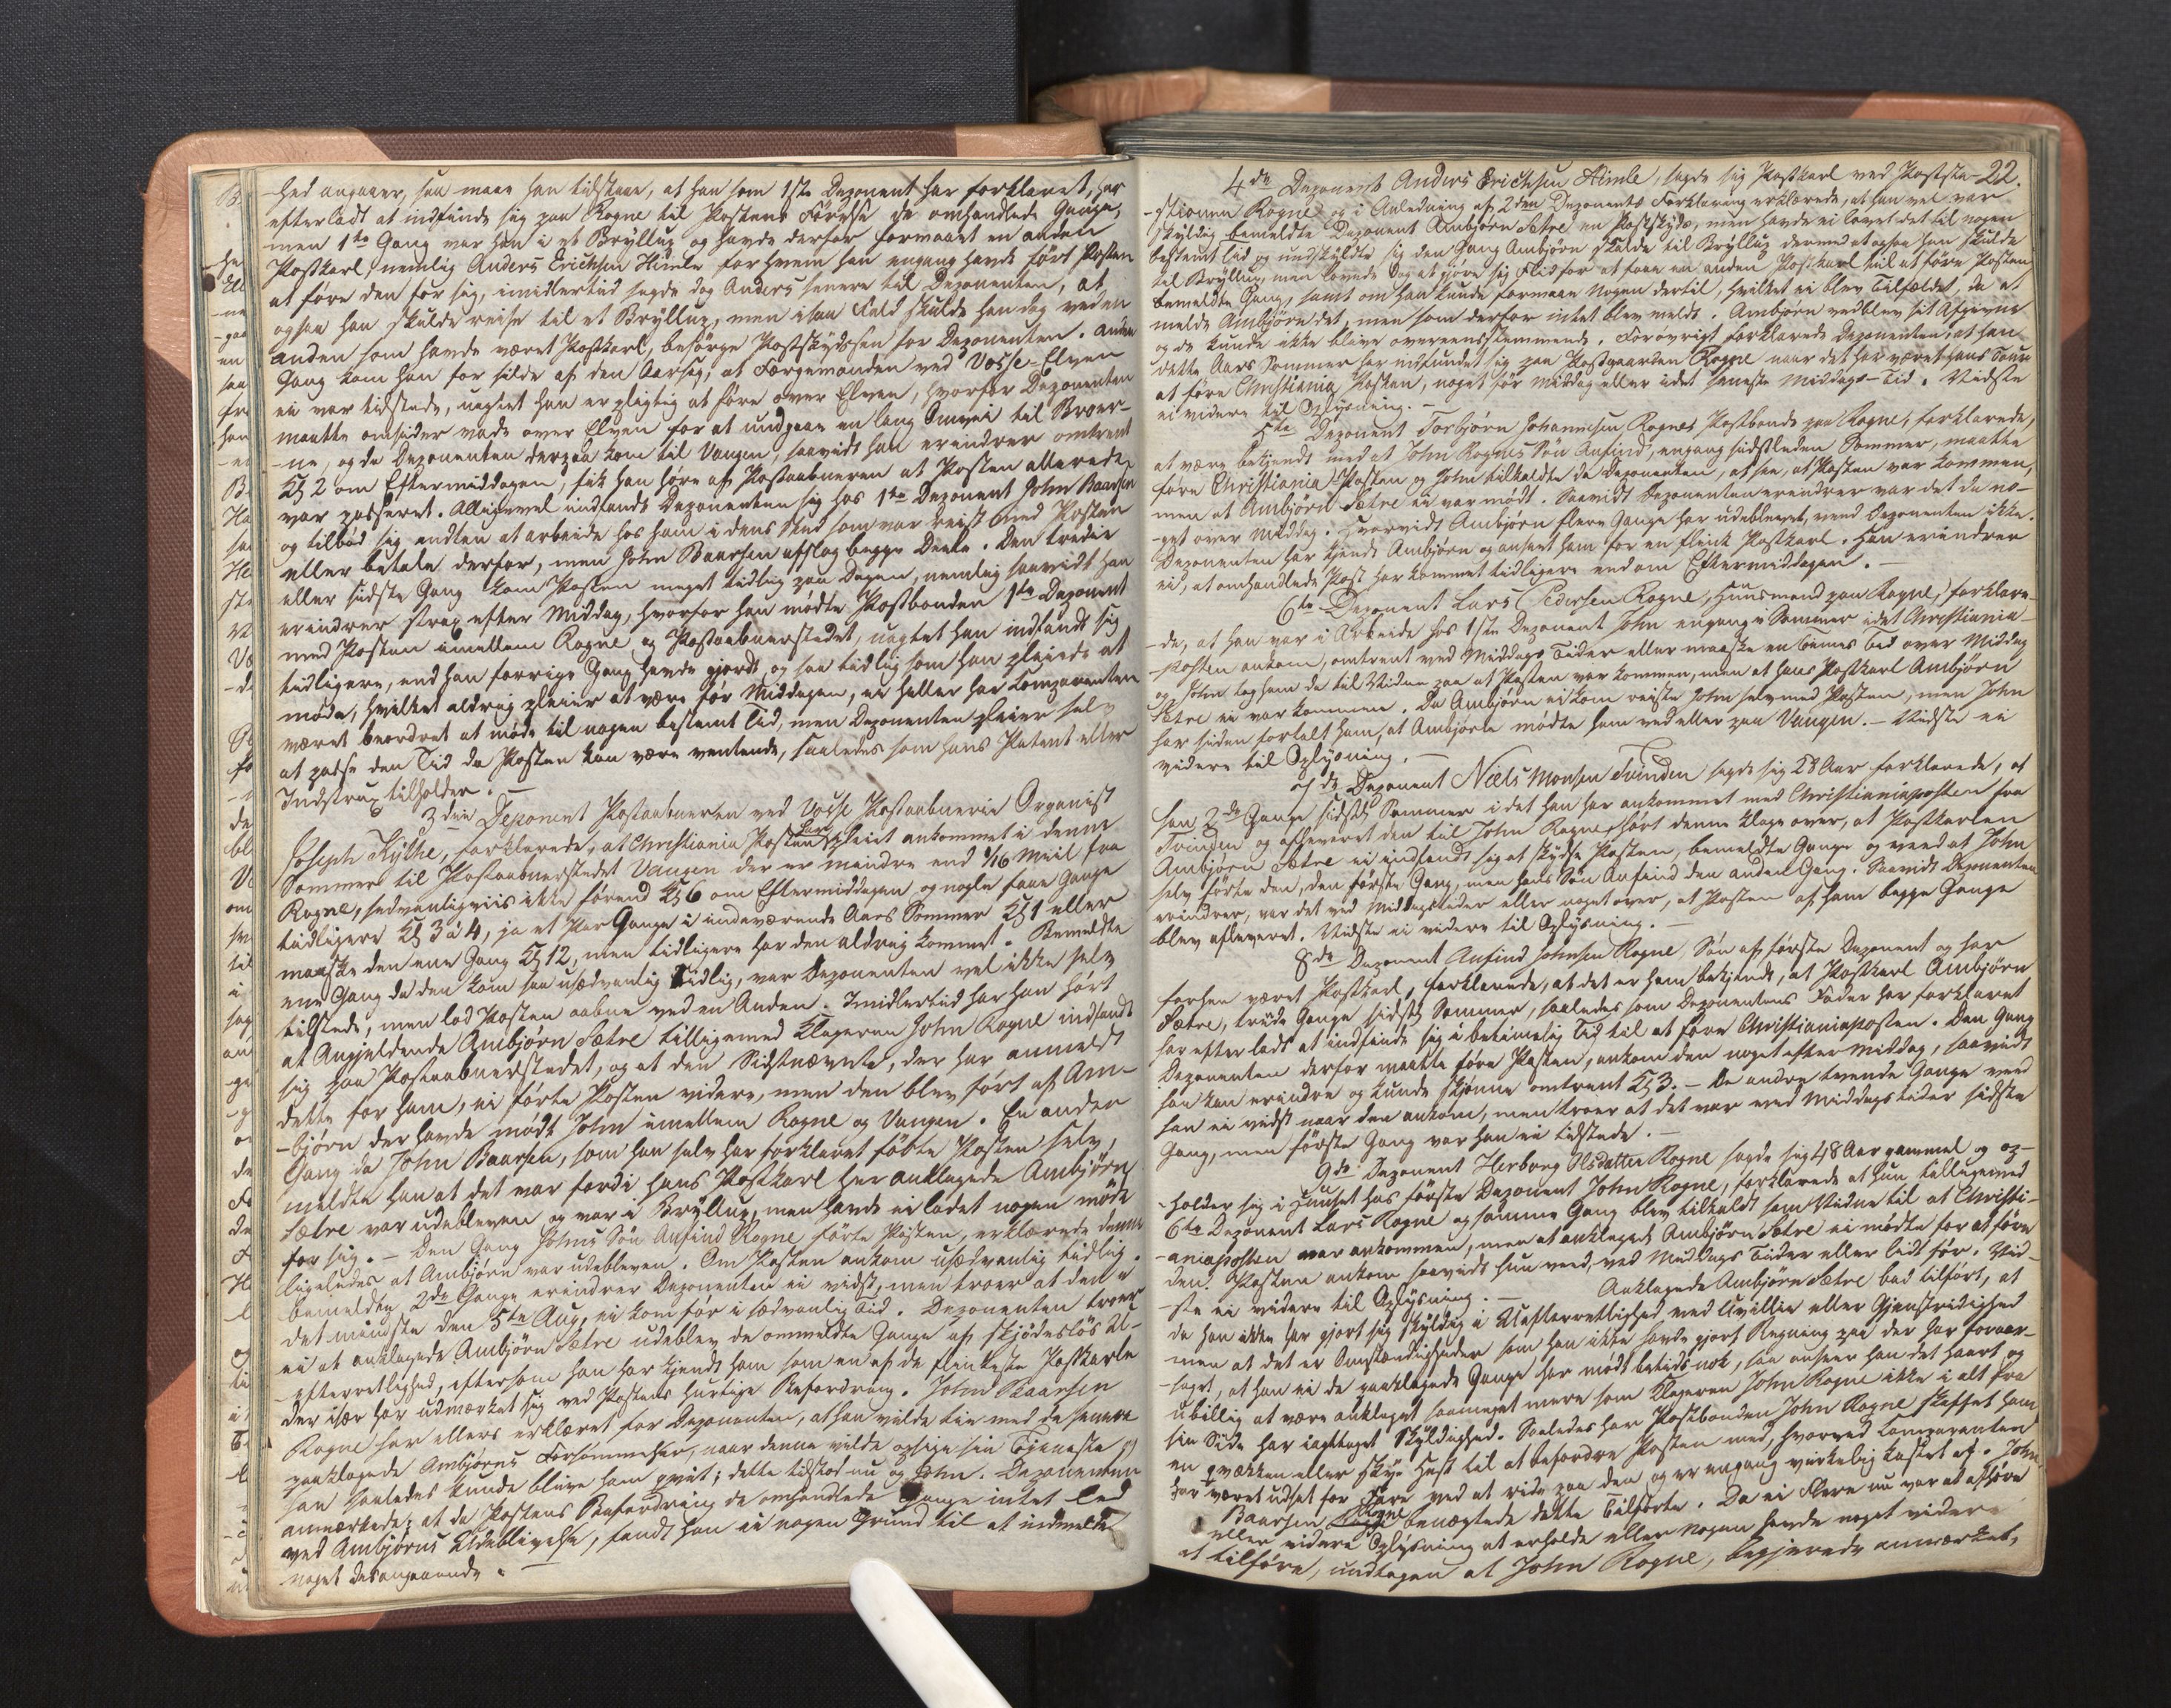 hed angaaer, saa maae han tilstaae, at han som 1ste Deponent har forklaret, har
efterladt at indfinde sig paa Rogne til Postens Førelse de omhandlede Gange,
men 1ste Gang var han i et Bryllup og havde derfor formaaet en anden
Postkarl, nemlig Anders Erichsen Himle for hvem han engang havde ført Posten
at føre den for sig, imidlertid sagde dog Anders senere til Deponenten, at
ogsaa han skulde reise til et Bryllup, men i saa Fald skulde han dog ved en
anden som havde været Postkarl, besørge Postskydsen for Deponenten. Anden
Gang kom han for silde af den Aarsag, at Færgemanden ved Vosse-Elven
ei var tilstede, uagtet han er pligtig at føre over Elven, hvorfor Deponenten
maatte omsider vade over Elven for at undgaae en lang Omvei til Broer-
ne, og da Deponenten derpaa kom til Vangen, saavidt han erindrer omtrent
Kl 2 om Eftermiddagen, fik han høre af Postaabneren at Posten allerede
var passeret. Alligevel indfandt Deponenten sig hos 1ste Deponent John Baarsen
og tilbød sig endten at arbeide hos ham i dens Sted som var reist med Posten
eller betale derfor, men John Baarsen afslog begge Deele. Den tredie
eller sidste Gang kom Posten meget tidlig paa Dagen, nemlig saavidt han
erindrer strax efter Middag, hvorfor han mødte Postbonden 1ste Deponent
med Posten imellem Rogne og Postaabnerstedet, uagtet han indfandt sig
tidligere, end han forrige Gang havde gjort og saa tidlig som han pleiede at
møde, hvilket aldrig pleier at være før Middagen, ei heller har Comparenten
været beordret at møde til nogen bestemt Tid, men Deponenten pleier selv
at passe den Tid da Posten kan være ventende, saaledes som hans Patent eller
Instrux tilholder. —
3die Deponent Postaabneren ved Vosse Postaabnerie Organist
Joseph Kythe, forklarede, at Christiania Posten har pleiet ankommet i denne
Sommer til Postaabnerstedet Vangen der er mindre end 1/16 Miil fra
Rogne, sædvanligviis ikke førend Kl 6 om Eftermiddagen og nogle faae Gange
tidligere Kl 3 à 4, ja et Par Gange i indeværende Aars Sommer Kl 1 eller
maaske den ene Gang Kl 12, men tidligere har den aldrig kommet. Bemeldte
ene Gang da den kom saa usædvanlig tidlig, var Deponenten vel ikke selv
tilstede, men lod Posten aabne ved en Anden. Imidlertid har han hørt
at Angjeldende Ambjørn Sætre tilligemed Klageren John Rogne indfandt
sig paa Postaabnerstedet, og at den Sidstnævnte, der har anmeldt
dette for ham, ei førte Posten videre, men den blev ført af Am-
-bjørn der havde mødt John imellem Rogne og Vangen. En anden
Gang da John Baarsen, som han selv har forklaret førte Posten selv,
meldte han at det var fordi hans Postkarl her anklagede Ambjørn
Sætre var udebleven og var i Bryllup, men havde ei ladet nogen møde
for sig. — Den Gang Johns Søn Anfind Rogne førte Posten, erklærede denne
ligeledes at Ambjørn var udebleven. Om Posten ankom usædvanlig tidlig
bemeldte 2de Gange erindrer Deponenten ei vidst, men troer at den i
det mindste den 5te Aug. ei kom før i sædvanlig Tid. Deponenten troer
ei at anklagede Ambjørn Sætre udeblev de ommeldte Gange af skjødesløs U-
efterretlighed, eftersom han har kjendt ham som en af de flinkeste Postkarle
der især har udmærket sig ved Postens hurtige Befordring. John Baarsen
Rogne har ellers erklæret for Deponenten, at han vilde tie med de senere
paaklagede Ambjørns Forsømmelser, naar denne vilde opsige sin Tjeneste
han saaledes kunde blive ham qvit; dette tilstod nu og John. Deponenten
anmærkede; at da Postens Befordring de omhandlede Gange intet led
ved Ambjørns Udeblivelse, fandt han ei nogen Grund til at indmelde
noget desangaaende. —
22.
4de Deponent Anders Erichsen Himle, sagde sig Postkarl ved Poststa-
-tionen Rogne og i Anledning af 2den Deponents Forklaring erklærede, at han vel var
skyldig bemeldte Deponent Ambjørn Sætre en Postskyds, men havde ei lovet det til nogen
bestemt Tid og undskyldte sig den Gang Ambjørn skulde til Bryllup dermed at ogsaa han skulde
til Bryllup, men lovede dog at gjøre sig Flid for at faae en anden Postkarl til at føre Posten
bemeldte Gang, samt om han kunde formaae nogen dertil, hvilket ei blev Tilfældet, da at
melde Ambjørn det, men som derfor intet blev meldt. Ambjørn vedblev sit Afgivne
og de kunde ikke blive overeensstemmende. Forøvrigt forklarede Deponenten at han
dette Aars Sommer har indfundet sig paa Postgaarden Rogne naar det har været hans Touer
at føre Christiania Posten, noget før Middag eller i det seneste Middags-Tid. Vidste
ei videre til Oplysning. —
5te Deponent Torbjørn Johannesen Rogne, Postbonde paa Rogne, forklarede,
at være bekjendt med at John Rognes Søn Anfind, engang sidstleden Sommer, maatte
føre Christiania Posten og John tilkaldte da Deponenten, at see, at Posten var kommen,
men at Ambjørn Sætre ei var mødt. Saavidt Deponenten erindrer var det da no-
-get over Middag. Hvorvidt Ambjørn flere Gange har udeblevet, veed Deponenten ikke.
Deponenten har kjendt Ambjørn og anseet ham for en flink Postkarl. Han erindrer
ei, at omhandlede Post har kommet tidligere end om Eftermiddagen. —
6te Deponent Lars Pedersen Rogne, Huusmand paa Rogne, forklare-
-de, at han var i Arbeide hos 1ste Deponent John engang i Sommer idet Christiania-
-posten ankom, omtrent ved Middags Tider eller maaske en Times Tid over Middag
og John tog ham da til Vidne paa at Posten var kommen, men at hans Postkarl Ambjørn
Sætre ei var kommen. Da Ambjørn ei kom reiste John selv med Posten, men John
har siden fortalt ham, at Ambjørn mødte ham ved eller paa Vangen. — Vidste ei
videre til Oplysning. —
7de Deponent Niels Monsen Tvinden sagde sig 28 Aar forklarede, at
han 2de Gange sidste Sommer i det han har ankommet med Christianiaposten fra
Tvinden og afleveret den til John Rogne, hørt denne klage over, at Postkarlen
Ambjørn Sætre ei indfandt sig at skydse Posten, bemeldte Gange og veed at John
selv førte den, den første Gang, men hans Søn Anfind den anden Gang. Saavidt Deponenten
erindrer, var det ved Middagstider eller noget over, at Posten af ham begge Gange
blev afleveret. Vidste ei videre til Oplysning. —
8de Deponent Anfind Johnsen Rogne, Søn af første Deponent og har
forhen været Postkarl, forklarede, at det er ham bekjendt, at Postkarl Ambjørn
Sætre, trende Gange sidste Sommer, saaledes som Deponentens Fader har forklaret
har efterladt at indfinde sig i betimelig Tid til at føre Christianiaposten. Den Gang
Deponenten derfor maatte føre Posten, ankom den noget efter Middag, saavidt
han kan erindre og kunde skjønne omtrent Kl 3. — De andre tvende Gange veed
han ei vidst naar den ankom, men troer at det var ved Middagstider sidste
Gang, men første Gang var han ei tilstede. —
9de Deponent Herborg Olsdatter Rogne sagde sig 48 Aar gammel og op-
-holder sig i Huset hos første Deponent John Rogne, forklarede at hun tilligemed
6te Deponent Lars Rogne og samme Gang blev tilkaldt som Vidne til at Christi-
-aniaposten var ankommen, men at anklagede Ambjørn Sætre ei mødte for at føre
den. Posten ankom saavidt hun veed, ved Middags Tider eller lidt før. Vid-
-ste ei videre til Oplysning. —
Anklagede Ambjørn Sætre bad tilført, at
da han ikke har gjort sig skyldig i Uefterrettelighed ved Uvillie eller Gjenstridighed
men at det er Omstændigheder som han ikke havde gjort Regning paa der har foraar-
-saget, at han ei de paaklagede Gange har mødt betids nok, saa anseer han det haart og
ubillig at være anklaget saameget mere som Klageren John Rogne ikke i alt fra
sin Side har iagttaget Skyldighed. Saaledes har Postbonden John Rogne skaffet ham
en qvækken eller sky Hest til at befordre Posten med, hvorved Comparenten
har været udsat for Fare ved at ride paa den og er engang virkelig kastet af. John
Baarsen Rogne benægtede dette Tilførte. Da ei Flere nu var at afhøre
eller videre Oplysning at erholde eller Nogen havde noget videre
at tilføre, undtagen at John Rogne, begjerede anmærket,